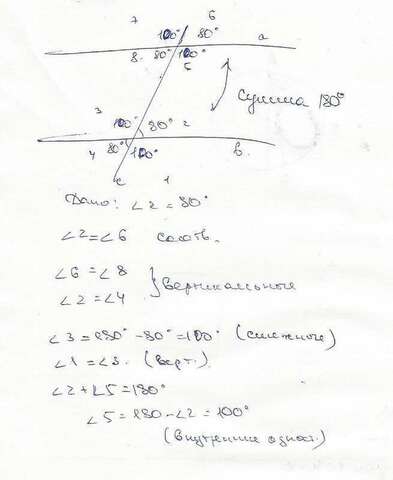 7 6
100° 80° a
8 80° 100°
5
Сумма 180°
3
100° 80° 2
4 80° 100° b
c 1
Дано: ∠2 = 80°
∠2 = ∠6 соотв.
∠6 = ∠8
∠2 = ∠4 } Вертикальные
∠3 = 180° - 80° = 100° (смежные)
∠1 = ∠3. (верт.)
∠2 + ∠5 = 180°
∠5 = 180 - ∠2 = 100°
(внутренние одност.)